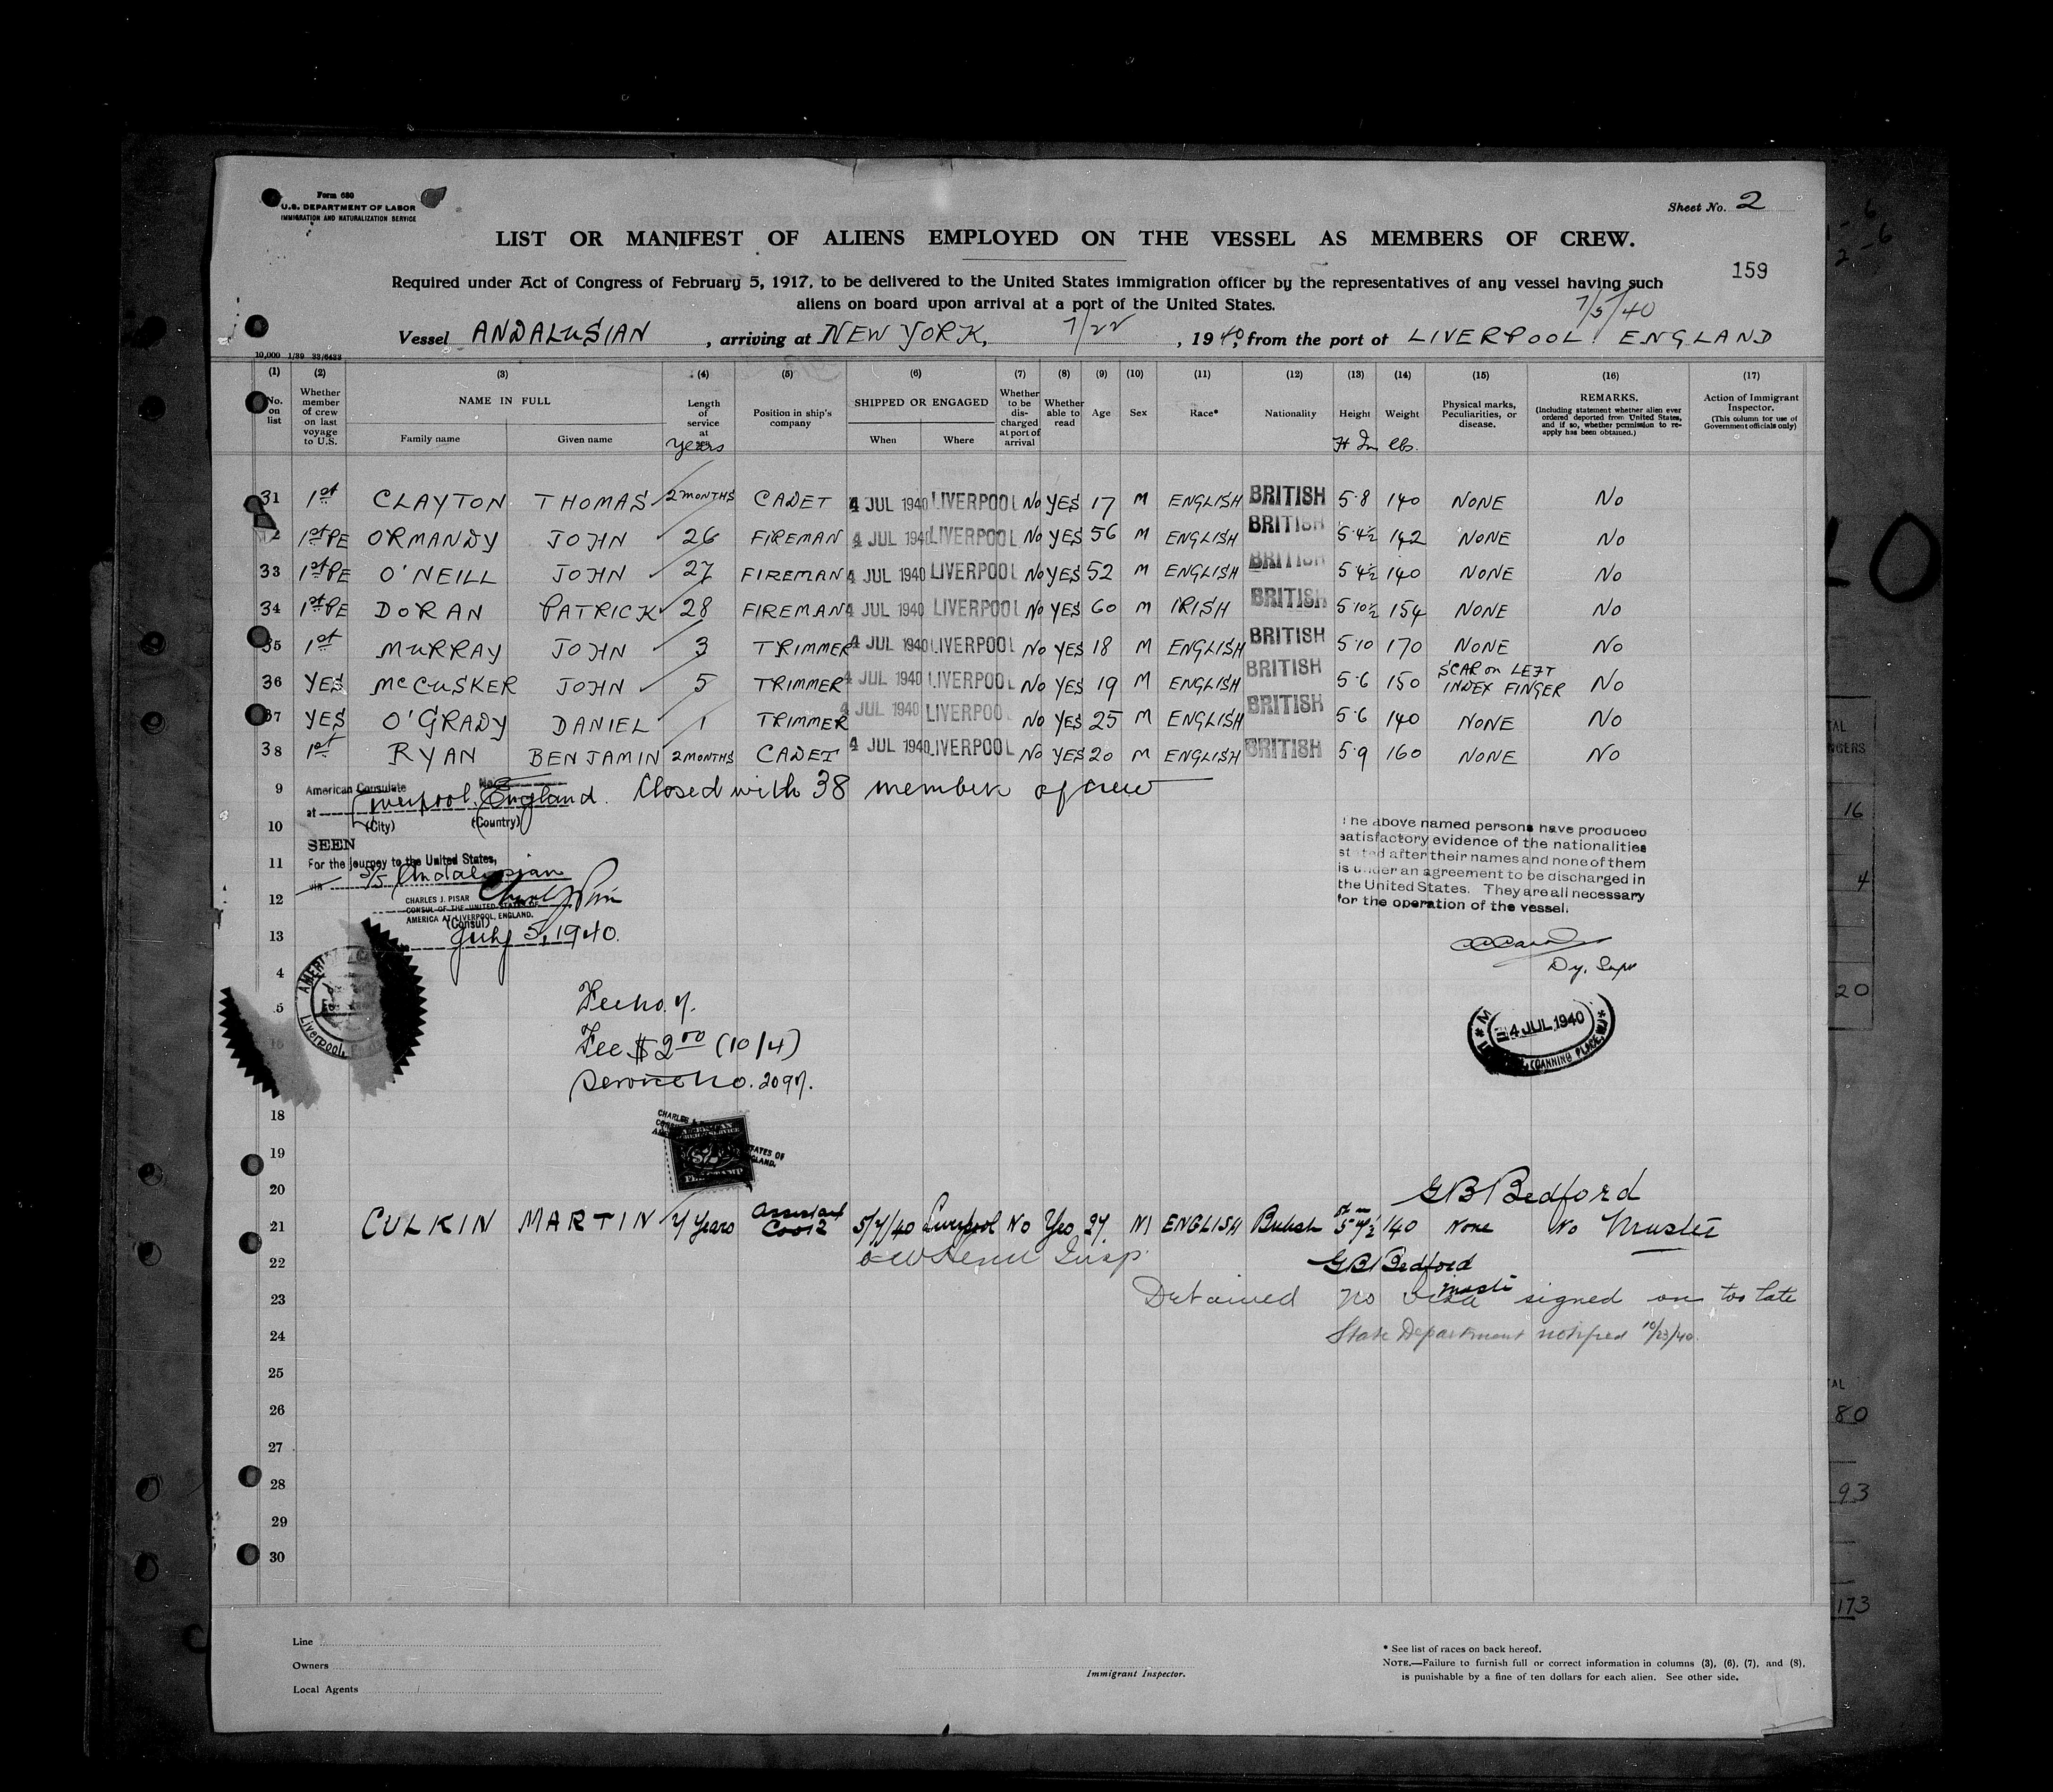 Form 680
U.S. DEPARTMENT OF LABOR
IMMIGRATION AND NATURALIZATION SERVICE
Sheet No. 2
LIST OR MANIFEST OF ALIENS EMPLOYED ON THE VESSEL AS MEMBERS OF CREW.
159
Required under Act of Congress of February 5, 1917, to be delivered to the United States immigration officer by the representatives of any vessel having such
aliens on board upon arrival at a port of the United States.
7/5/40
Vessel ANDALUSIAN, arriving at NEW YORK, 7/22, 1940, from the port of LIVERPOOL ENGLAND
10,000 1/39 33/6433
(1) (2) (3) (4) (5) (6) (7) (8) (9) (10) (11) (12) (13) (14) (15) (16) (17)
No. on list
Whether member of crew on last voyage to U.S.
NAME IN FULL
Family name
Given name
Length of service at
years
Position in ship's company
SHIPPED OR ENGAGED
When
Where
Whether to be discharged at port of arrival
Whether able to read
Age
Sex
Race*
Nationality
Height
Ft In
Weight
lbs.
Physical marks, Peculiarities, or disease.
REMARKS.
(Including statement whether alien ever ordered deported from United States, and if so, whether permission to reapply has been obtained.)
Action of Immigrant Inspector.
(This column for use of Government officials only)
31 1st CLAYTON THOMAS 2 MONTHS CADET 4 JUL 1940 LIVERPOOL No YES 17 M ENGLISH BRITISH 5·8 140 NONE No
2 1st PE ORMANDY JOHN 26 FIREMAN 4 JUL 1940 LIVERPOOL No YES 56 M ENGLISH BRITISH 5·4½ 142 NONE No
33 1st PE O'NEILL JOHN 27 FIREMAN 4 JUL 1940 LIVERPOOL No YES 52 M ENGLISH BRITISH 5·4½ 140 NONE No
34 1st PE DORAN PATRICK 28 FIREMAN 4 JUL 1940 LIVERPOOL No YES 60 M IRISH BRITISH 5·10½ 154 NONE No
35 1st MURRAY JOHN 3 TRIMMER 4 JUL 1940 LIVERPOOL No YES 18 M ENGLISH BRITISH 5·10 170 NONE No
36 YES McCUSKER JOHN 5 TRIMMER 4 JUL 1940 LIVERPOOL No YES 19 M ENGLISH BRITISH 5·6 150 SCAR on LEFT INDEX FINGER No
37 YES O'GRADY DANIEL 1 TRIMMER 4 JUL 1940 LIVERPOOL No YES 25 M ENGLISH BRITISH 5·6 140 NONE No
38 1st RYAN BENJAMIN 2 MONTHS CADET 4 JUL 1940 LIVERPOOL No YES 20 M ENGLISH BRITISH 5·9 160 NONE No
9 American Consulate No.
at Liverpool, England. Closed with 38 members of crew
10 (City) (Country)
SEEN
11 For the journey to the United States,
via S/S Andalusian
12 CHARLES J. PISAR
CONSUL OF THE UNITED STATES OF
AMERICA AT LIVERPOOL, ENGLAND.
(Consul)
13 July 5, 1940.
The above named persons have produced
satisfactory evidence of the nationalities
stated after their names and none of them
is under an agreement to be discharged in
the United States. They are all necessary
for the operation of the vessel.
Dy. Supt
4 JUL 1940
CANNING PLACE
4
5
Liverpool,
16
Fee no. 7.
Fee $2.00 (10/4)
Service No. 2097.
18
19
20
FEE STAMP
GB Bedford
21 CULKIN MARTIN 7 years Assistant Cook 5/7/40 Liverpool No Yes 27. M ENGLISH British 5 4½ 140 None No Master
22 Insp. GB Bedford
Master
23 Detained no visa signed on too late
24 State Department notified 10/23/40
25
26
27
28
29
30
Line
Owners
Local Agents
Immigrant Inspector.
* See list of races on back hereof.
NOTE.—Failure to furnish full or correct information in columns (3), (6), (7), and (8),
is punishable by a fine of ten dollars for each alien. See other side.